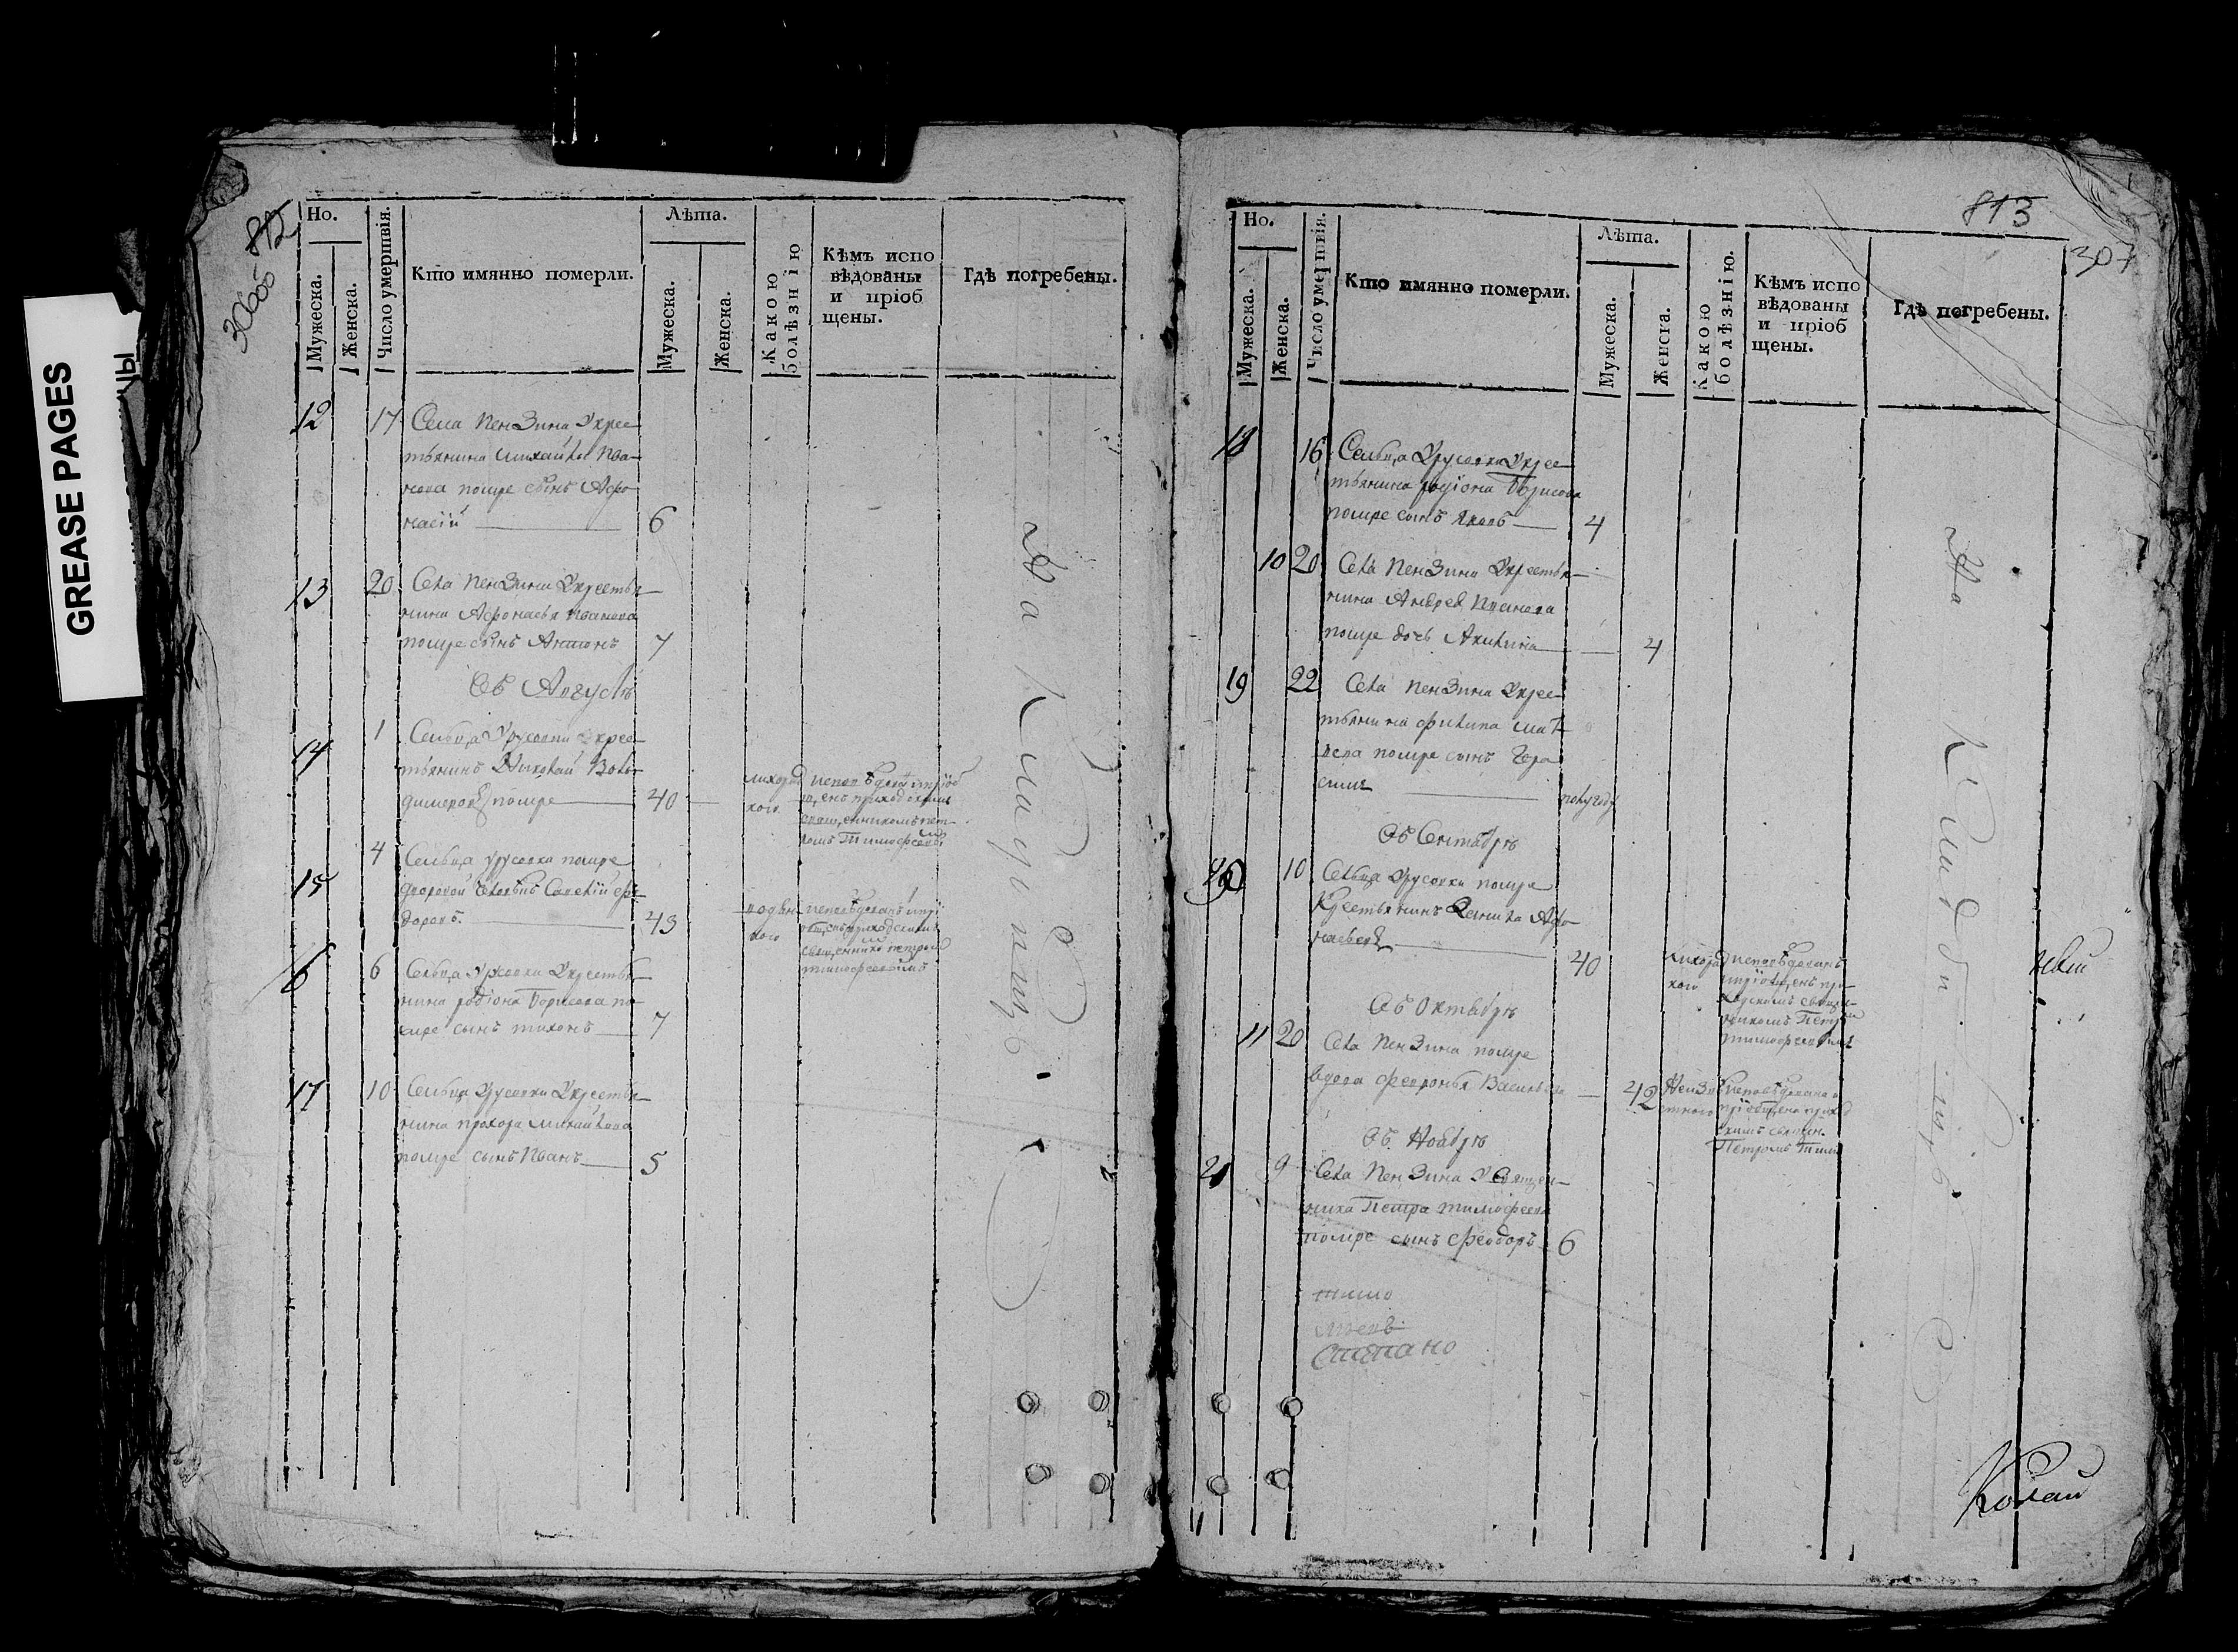 GREASE PAGES
812
306об
Но.
Мужеска.
Женска.
Число умертвія.
Кто имянно померли.
Лѣта.
Мужеска.
Женска.
Какою болѣзнію
Кѣмъ испо
вѣдованы
и пріоб
щены.
Гдѣ погребены.
12 17 Села Пензина Укрес
тьянина Михайла Ива
нова помре сынъ Афо
насій 6
13 20 Села Пензина Укрестья
нина Афонасья Иванова
помре сынъ Антонъ 7
Въ Августѣ
14 1 Сельца Урусовки Укрес
тьянинъ Николай Воло
димеровъ помре 40
лихорад
кою
исповѣдованъ и пріоб
щенъ приходскимъ
священникомъ Пет
ромъ Тимофеевы
15 4 Сельца Урусовки помре
дворовой человѣкъ Савелій Фе
доровъ 43
исповѣдованъ и прі
общенъ приходскимъ
священнико Петром
Тимофеевымъ
16 6 Сельца Урусовки Укрестья
нина Родіона Борисова по
мре сынъ Тихонъ 7
17 10 Сельца Урусовки Укрестья
нина Прохора Михайлова
помре сынъ Иванъ 5
На Кладбищѣ
813
307
Но.
Мужеска.
Женска.
Число умертвія.
Кто имянно померли.
Лѣта.
Мужеска.
Женска.
Какою болѣзнію.
Кѣмъ испо
вѣдованы
и пріоб
щены.
Гдѣ погребены.
18 16 Сельца Урусовки Укрес
тьянина Родіона Борисова
помре сынъ Яковъ 4
10 20 Села Пензина Укрестья
нина Андрея Иванова
помре дочь Акилина 4
19 22 Села Пензина Укрес
тьянина Филипа Мат
веева помре сынъ Гера
симъ полугоду
Въ Сентябрѣ
20 10 Сельца Урусовки помре
Крестьянинъ Данила Афо
насьевъ 40
лихорад
кою
исповѣдованъ
и пріобщенъ при
ходскимъ священ
никомъ Петром
Тимофеевымъ
Въ Октябрѣ
11 20 Села Пензина помре
вдова Февронья Васильева 42
Неизвѣ
стною
исповѣдована и
пріобщена приход
скимъ священ.
Петромъ Тим
Въ Ноябрѣ
21 9 Села Пензина У Священ
ника Петра Тимофеева
помре сынъ Феодоръ 6
На Кладбищѣ